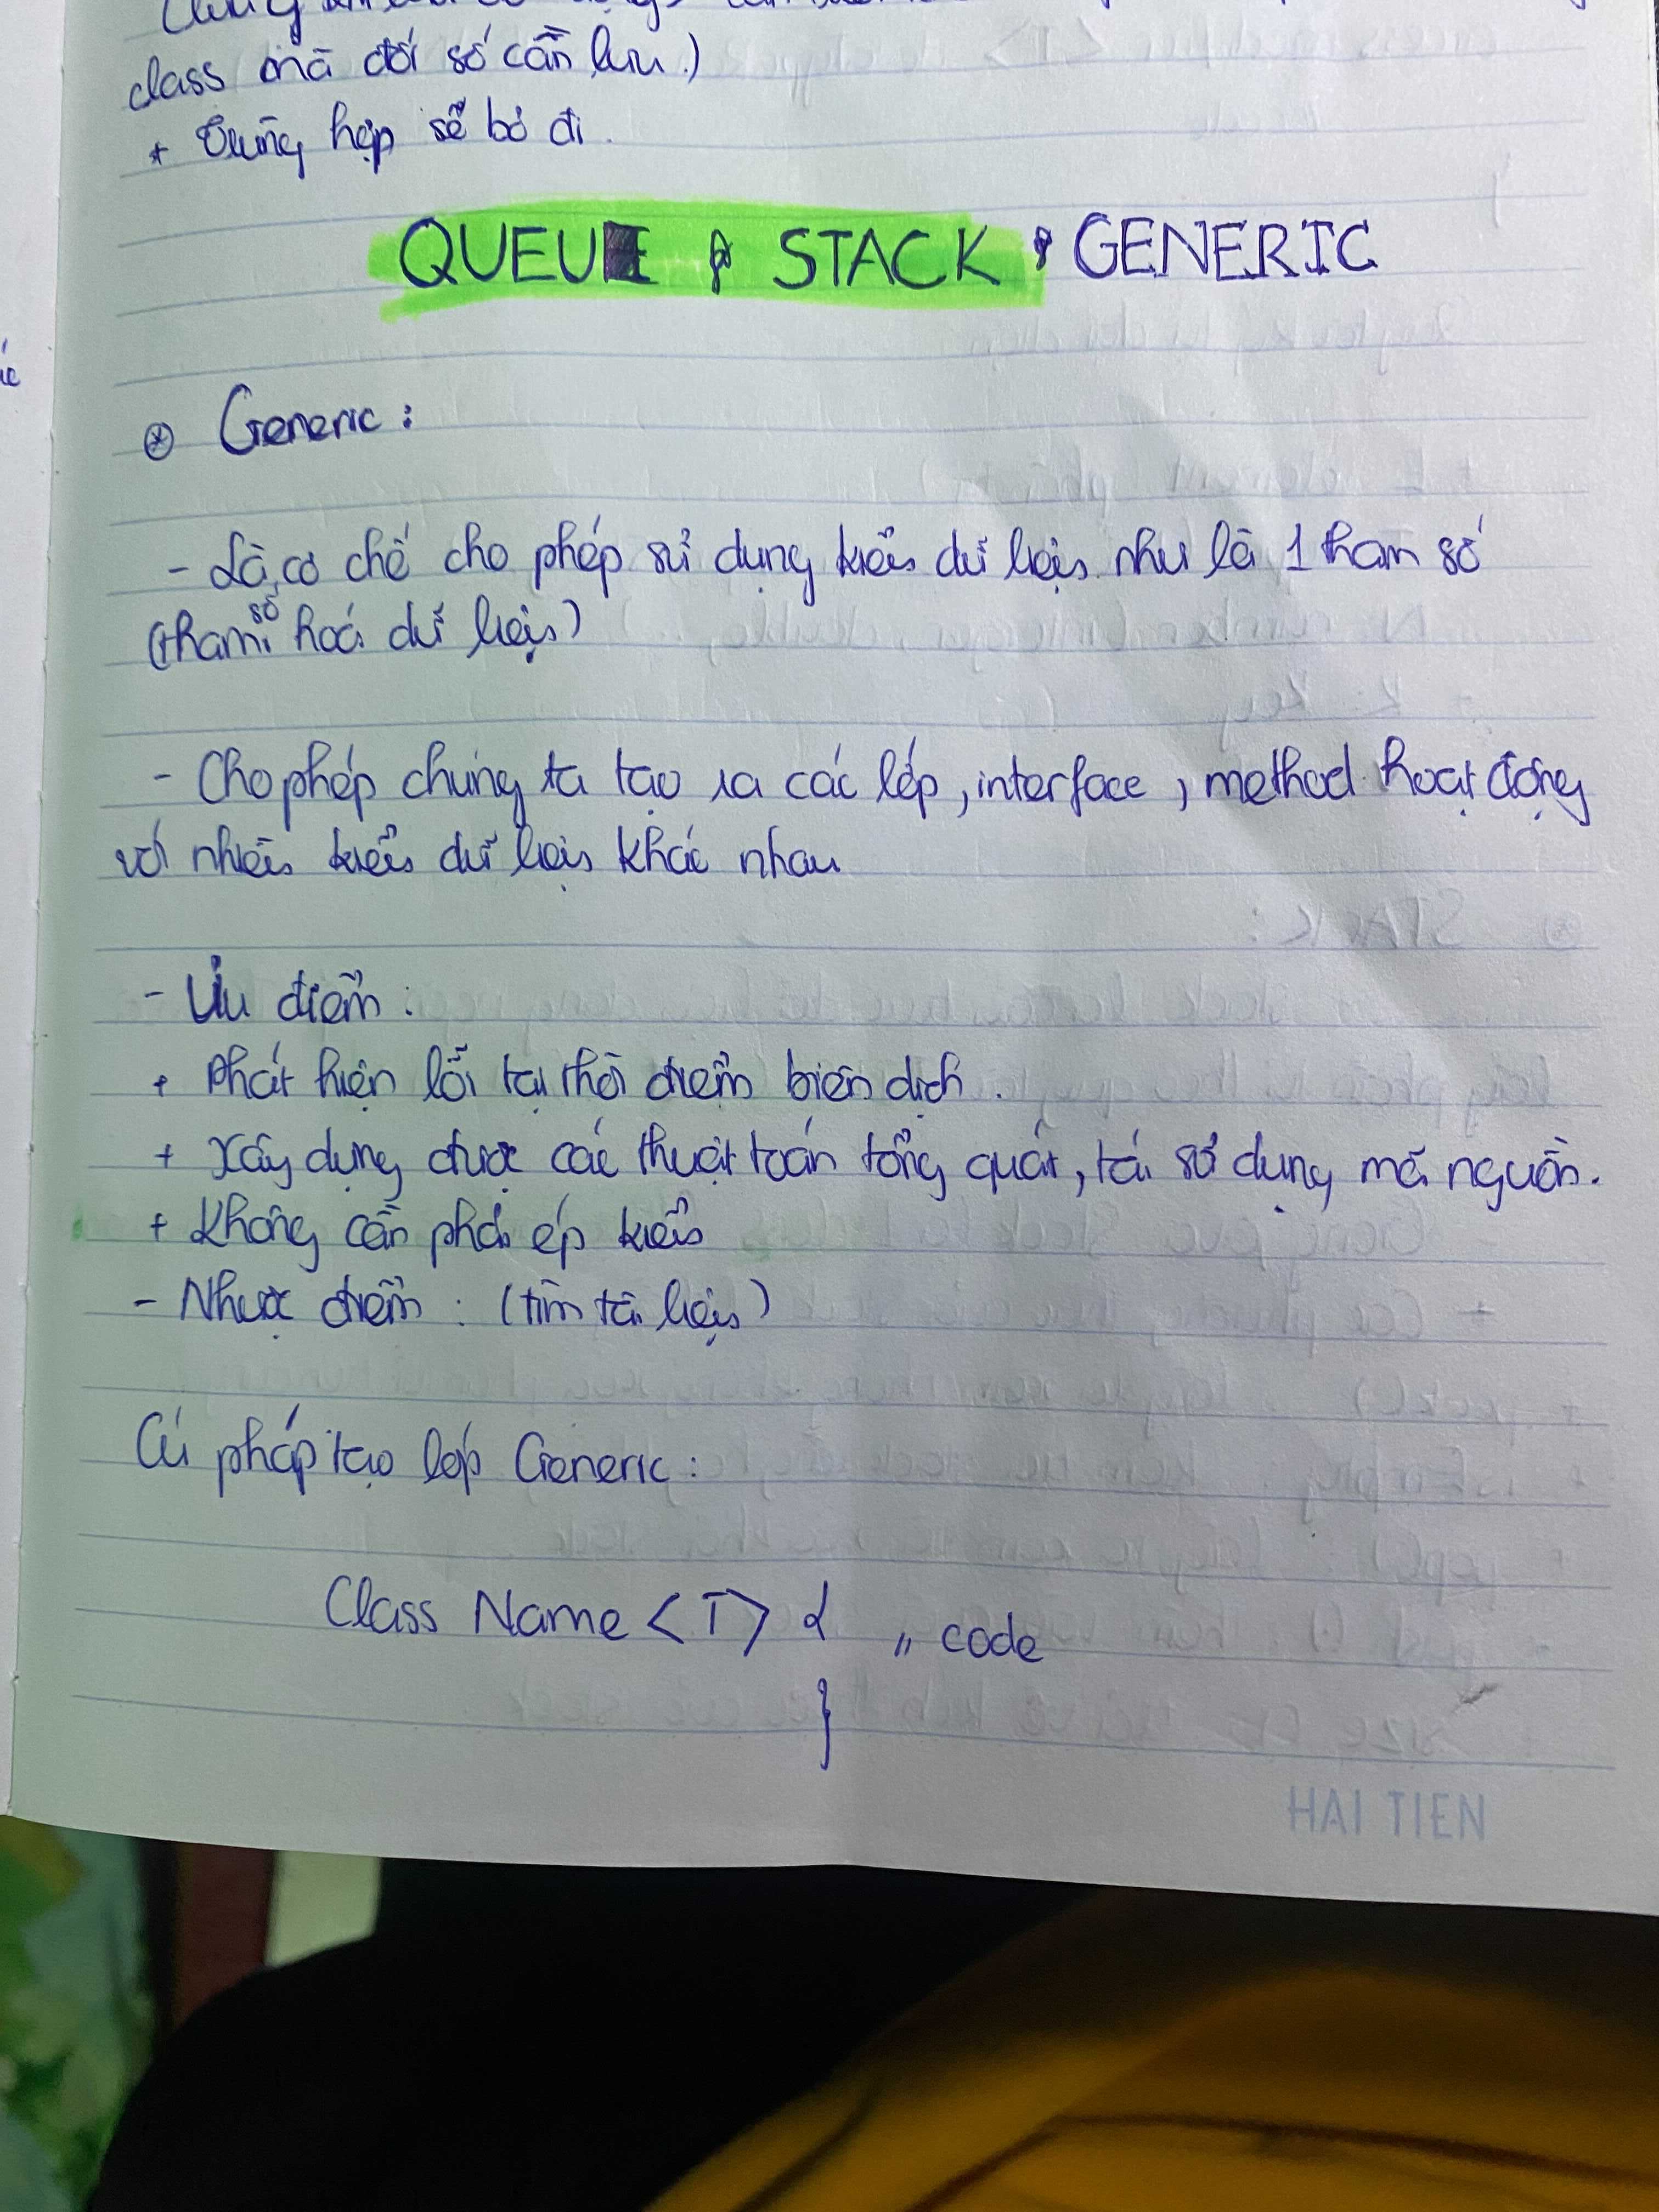 class mà đối số cần lưu)
+ Trường hợp sẽ bỏ đi.
QUEUE & STACK & GENERIC
⊛ Generic:
- Là cơ chế cho phép sử dụng kiểu dữ liệu như là 1 tham số
(tham số hoá dữ liệu)
- Cho phép chúng ta tạo ra các lớp, interface, method hoạt động
với nhiều kiểu dữ liệu khác nhau
- Ưu điểm:
+ Phát hiện lỗi tại thời điểm biên dịch.
+ Xây dựng được các thuật toán tổng quát, tái sử dụng mã nguồn.
+ Không cần phải ép kiểu
- Nhược điểm: (tìm tài liệu)
Cú pháp tạo lớp Generic:
Class Name <T> { // code
}
HAI TIEN